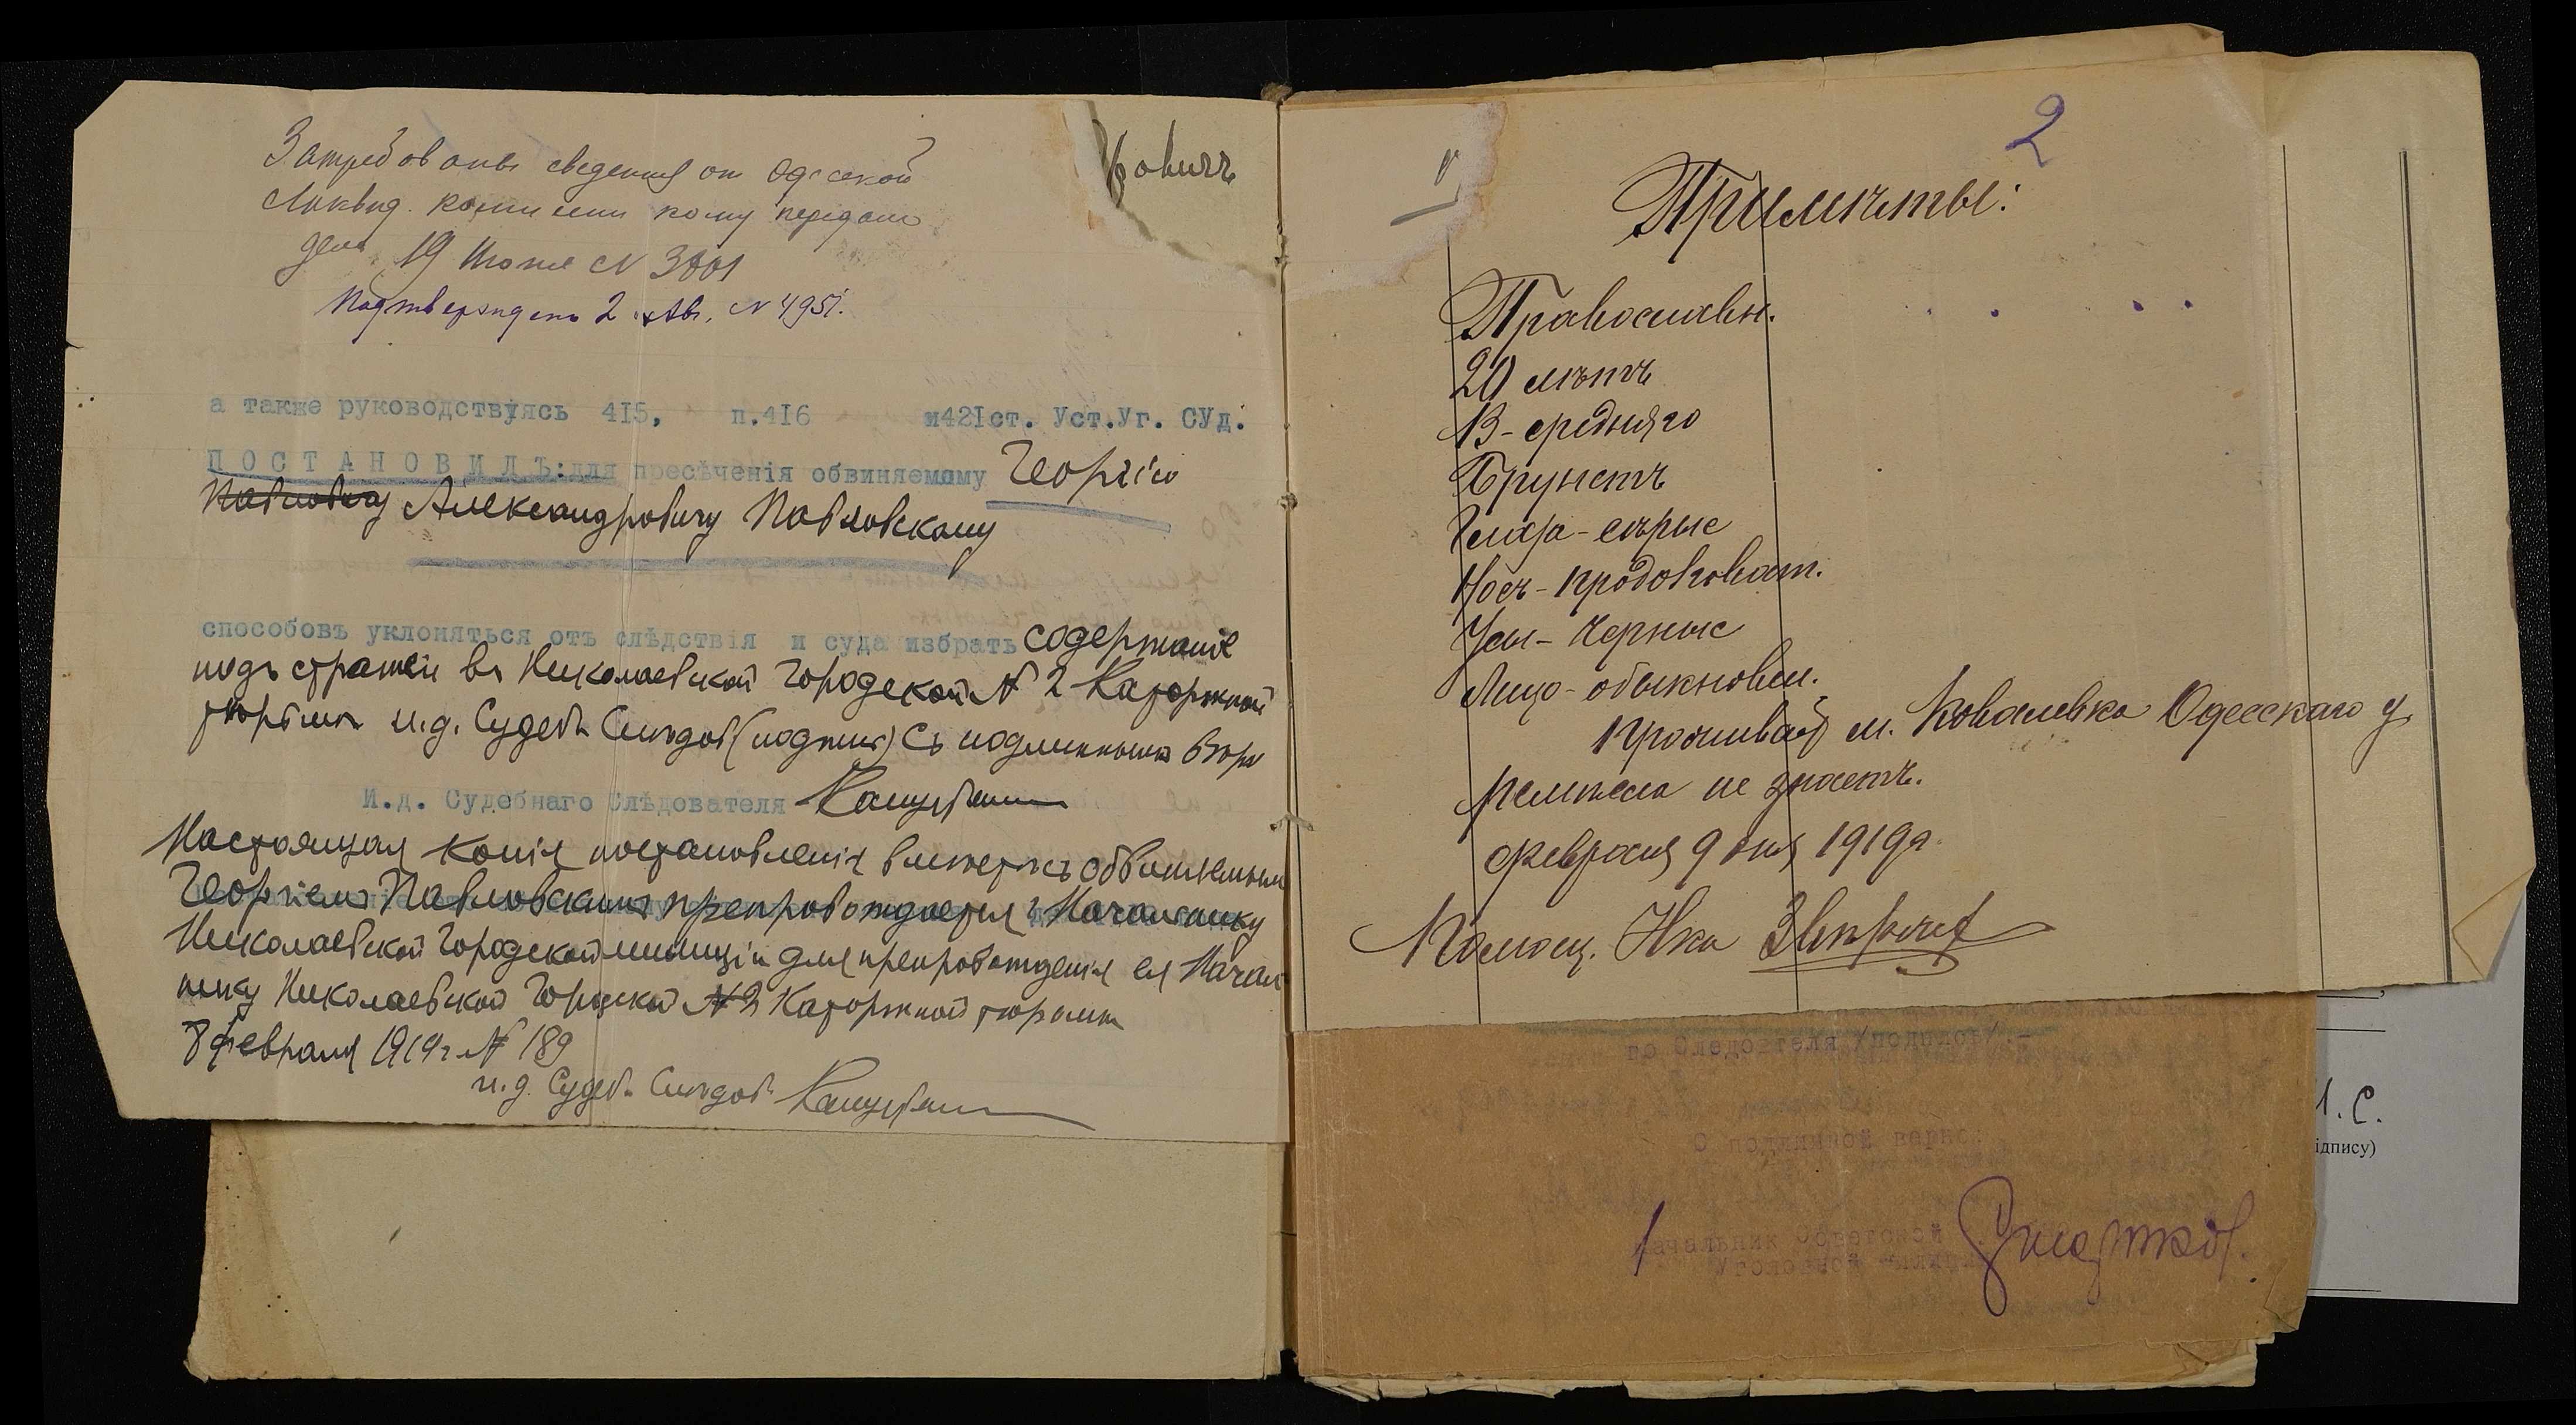 Затребованы сведения от Одесской
Ликвид. комиссии кому передано
дело 19 Июня N 3001
Подтверждено 2 Авг. N 4951.
ковичъ
а также руководствуясь 4I5, п.4I6 и42Iст. Уст.Уг. СУд.
П О С Т А Н О В И Л Ъ:для пресѣченія обвиняемому Георгію
Павловичу Александровичу Павловскому
способовъ уклоняться отъ слѣдствія и суда избрать содержаніе
подъ стражей въ Николаевской Городской № 2 Каторжной
тюрьмѣ и.д. Судебн. Слѣдов (подпись) Съ подлиннымъ вѣрн
И.д. Судебнаго Слѣдователя
Настоящая копія постановленія вмѣстѣ съ обвиняемым
Георгіемъ Павловскимъ препровождается Начальнику
Николаевской Городской милиціи для препровожденія ея Начал
нику Николаевской Городской № 2 Каторжной тюрьмы
8 февраля 1919г. № 189
и.д. Судебн. Слѣдов.
2
Примѣты:
Православн.
20 лѣтъ
В - средняго
Брунетъ
Глаза - сѣрые
Носъ - продолговат.
Усы - черные
Лицо - обыкновен.
Проживал м. Ковалевка Одесскаго у.
Ремесла не знаетъ.
февраля 9 дня 1919г.
Помощ. Нка
го Следователя /подпись/.-
С подлинной верно:
1
Начальник Советской
Уголовной милиции
І. С.
ідпису)